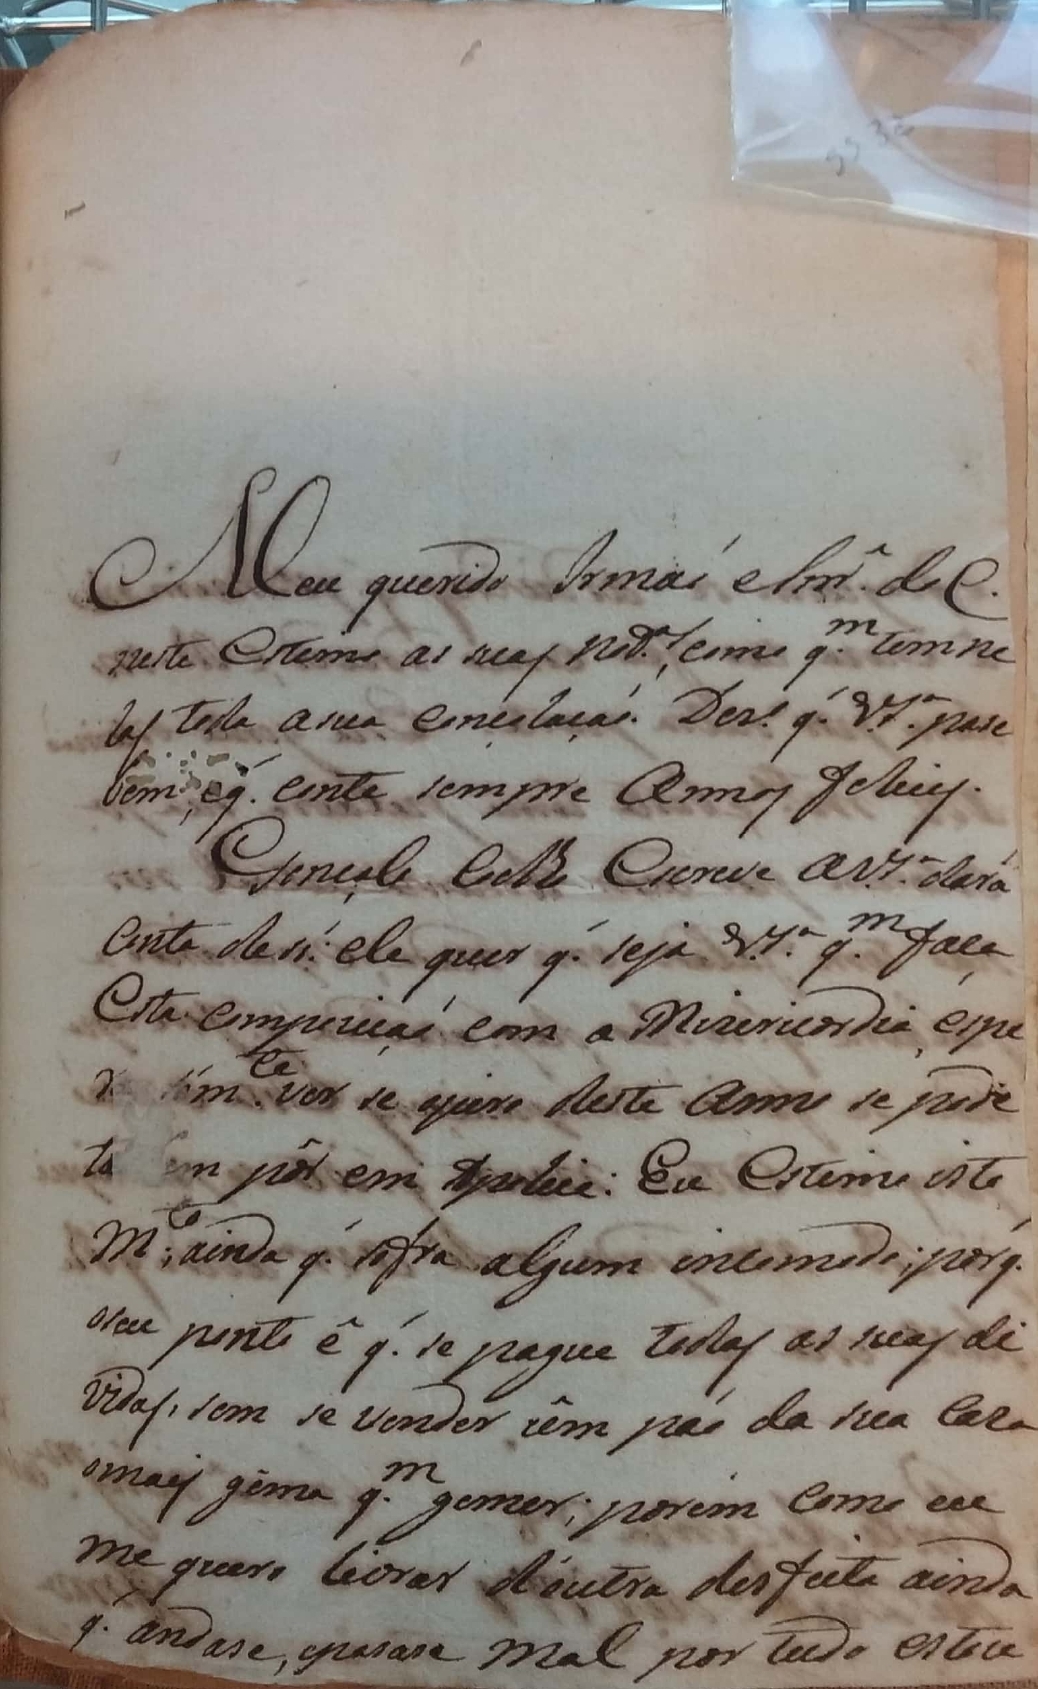 5532
Meu querido Irmaõ e Sn.r do C.
neste Estimo as suas not.as, como q.m tem ne
las toda a sua consolaçaõ. Dez.o q. V.S.a pase
bem, e q. conte sempre Annos felices.
Gonçalo Escreve a V.S.a dará
Conta de si: ele quer q. seja V.S.a q.m faça
Esta compoziçaõ com a Mizericordia, é spe
ver se o juro deste Anno se pode
pôr em Apolice: Eu Estimo isto
M.to, ainda q. sofra algum incomodo; porq.
o seu ponto ê q. se pague todas as suas di
vidas, sem se vender um páo da sua Caza
o mais gema q.m gemer; porem como eu
me quero livrar d'outra desfeita ainda
q. andase, e pasase mal por tudo estou